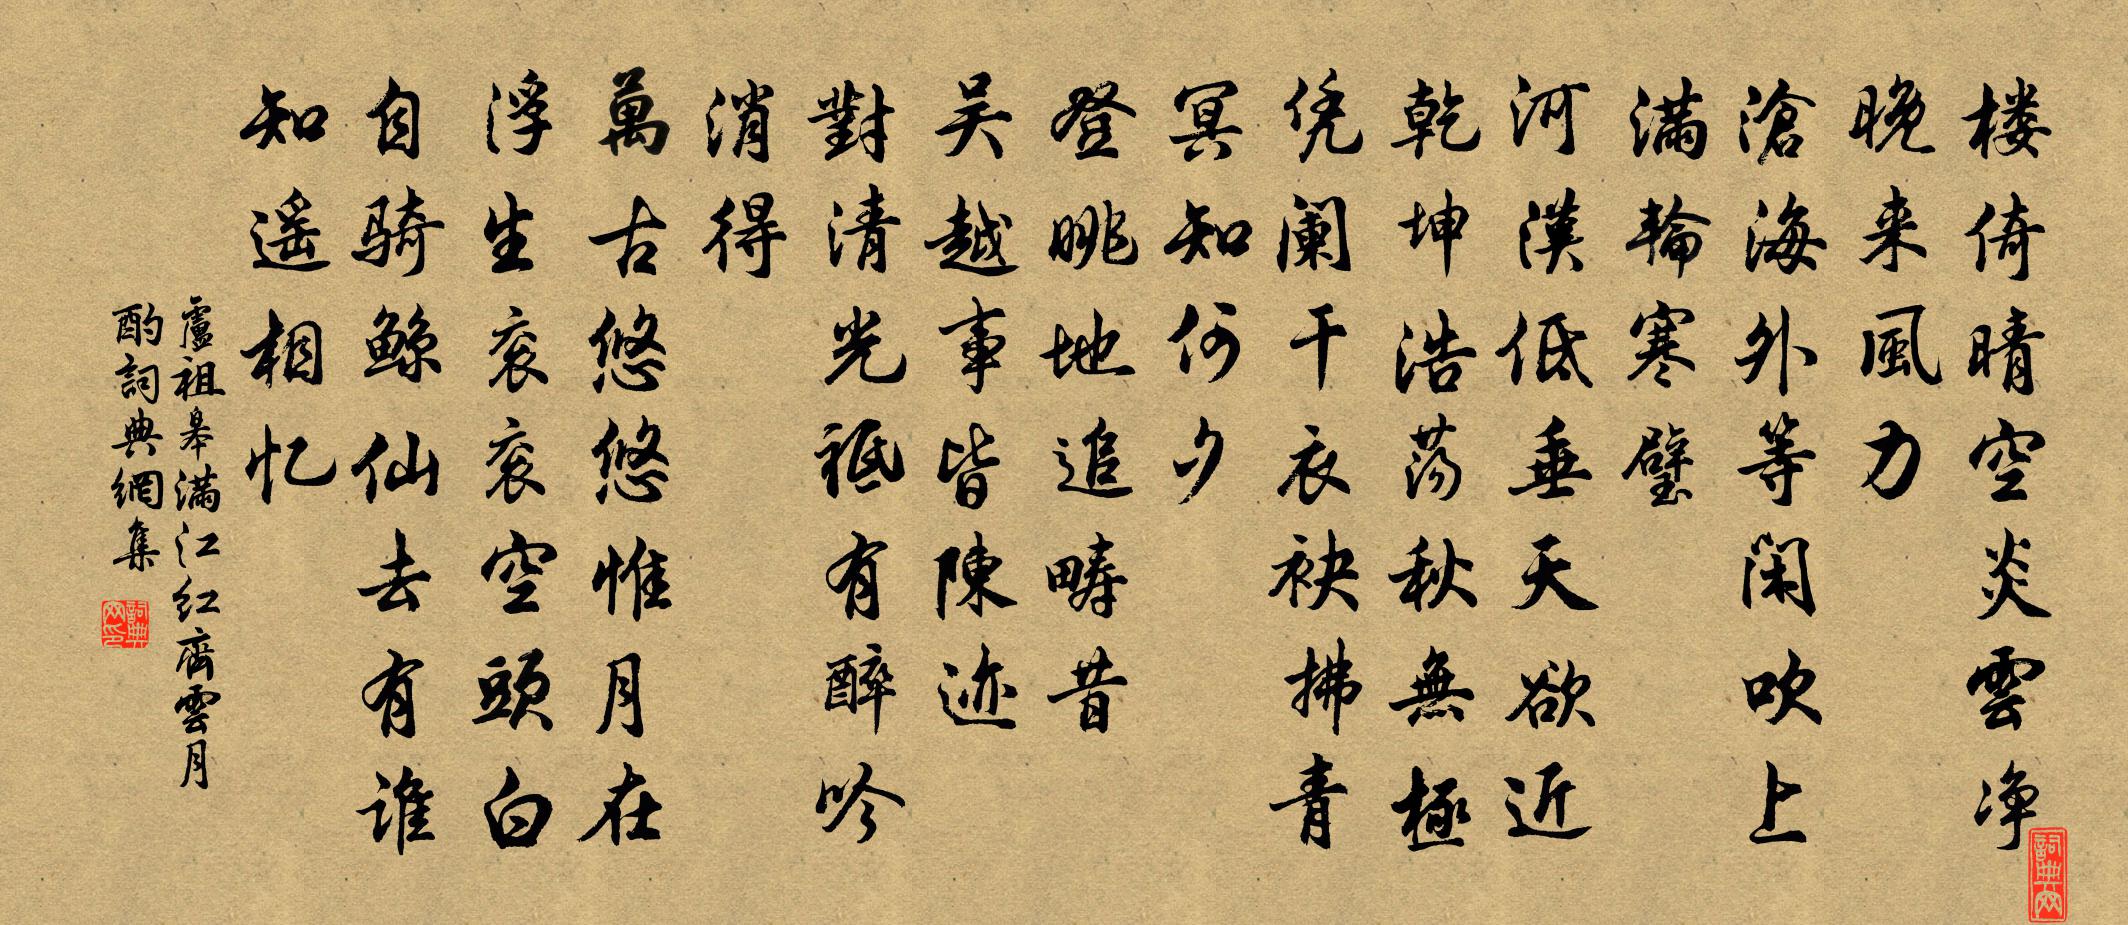 楼倚晴空炎雲净
晚来風力
滄海外等閑吹上
满輪寒璧
河漢低垂天欲近
乾坤浩荡秋無極
凭阑干衣袂拂青
冥知何夕
登眺地追畴昔
吴越事皆陳迹
對清光祗有醉吟
消得
萬古悠悠惟月在
浮生衮衮空頭白
自騎鲸仙去有誰
知遥相忆
盧祖皋满江红齊雲月
酌詞典網集
詞典网印
詞典网